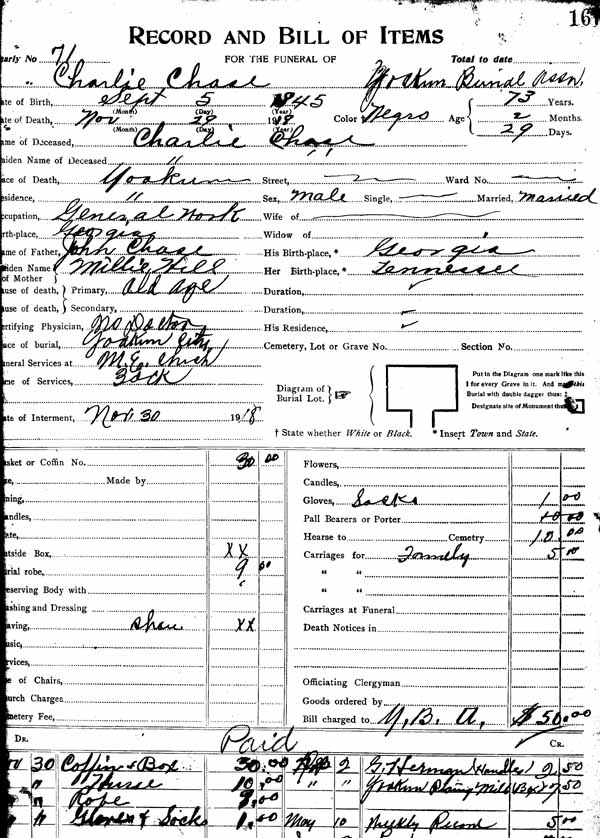 16
RECORD AND BILL OF ITEMS
early No 71 FOR THE FUNERAL OF Total to date
" Charlie Chase Yoakum Burial Assn.
ate of Birth, Sept 5 1845 73 Years.
(Month) (Day) (Year)
ate of Death, Nov 29 1918 Color † Negro Age 2 Months.
(Month) (Day) (Year) 29 Days.
ame of Deceased, Charlie Chase
aiden Name of Deceased " " "
ace of Death, Yoakum Street, Ward No.
esidence, " Sex, male Single, Married, married
cupation, General Work Wife of
rth-place, Georgia Widow of
ame of Father, John Chase His Birth-place, * Georgia
aiden Name of Mother Millie Hill Her Birth-place, * Tennessee
ause of death, Primary, old age Duration,
ause of death, Secondary, Duration,
ertifying Physician, No Doctor His Residence,
ace of burial, Yoakum City Cemetery, Lot or Grave No. Section No.
uneral Services at M.E. Chich
me of Services, Diagram of Burial Lot. Put in the Diagram one mark like this
I for every Grave in it. And mark this
Burial with double dagger thus: ‡
Designate site of Monument thus
ate of Interment, Nov. 30 1918 † State whether White or Black. * Insert Town and State.
asket or Coffin No. 30 00 Flowers,
se, Made by Candles,
ning, Gloves, Socks 1 00
andles, Pall Bearers or Porter 10 00
ate, Hearse to Cemetry 10 00
utside Box, XX Carriages for Famely 5 00
urial robe, 9 00 " "
eserving Body with " "
ashing and Dressing Carriages at Funeral
aving, Shav XX Death Notices in
usic,
rvices,
se of Chairs, Officiating Clergyman
hurch Charges Goods ordered by
metery Fee, Bill charged to Y. B. A. $50.00
DR. Paid CR.
30 Coffin & Box 30.00 2 G. Herman (Handles) 2.50
" " Hurse 10.00 " " Yoakum Mill (Box) 7.50
" " Rope 9.00
" " Gloves & Socks 1.00 May 10 Weekly Record 5.00